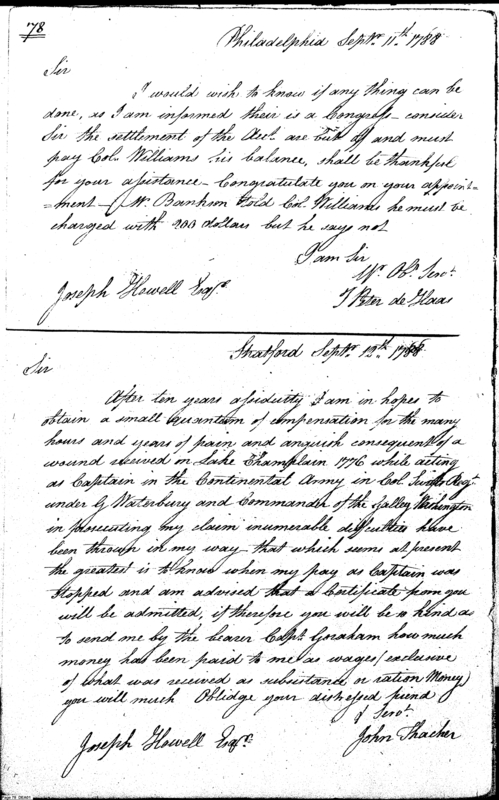 78
Philadelphia Septr. 11th. 1788
Sir
I would wish to know if any thing can be
done, as I am informed their is a Congress - consider
Sir the settlement of the Acct. are and must
pay Col. Williams his balance, shall be thankful
for your assistance - Congratulate you on your appoint-
=ment - Mr. Bankson told Col. Williams he must be
charged with 200 dollars but he say not
I am Sir
Yr. Ob. Servt.
Joseph Howell Esqr.
Peter de Haas
Stratford Septr. 12th. 1788
Sir
After ten years assiduity I am in hopes to
obtain a small quantum of compensation for the many
hours and years of pain and anguish consequent of a
wound received on Lake Champlain 1776 while acting
as Captain in the Continental Army in Col. Regt.
under G Waterbury and Commander of the Galley Washington
in prosecuting my claim inumerable difficulties have
been thrown in my way that which seems at present
the greatest is to know when my pay as Captain was
stopped and am advised that a Certificate from you
will be admitted, if therefore you will be so kind as
to send me by the bearer Capt. Graham how much
money has been paid to me as wages (exclusive
of what was received as subsistance or ration Money)
you will much Oblidge your distressed friend
& Servt.
Joseph Howell Esqr.
John Thacher